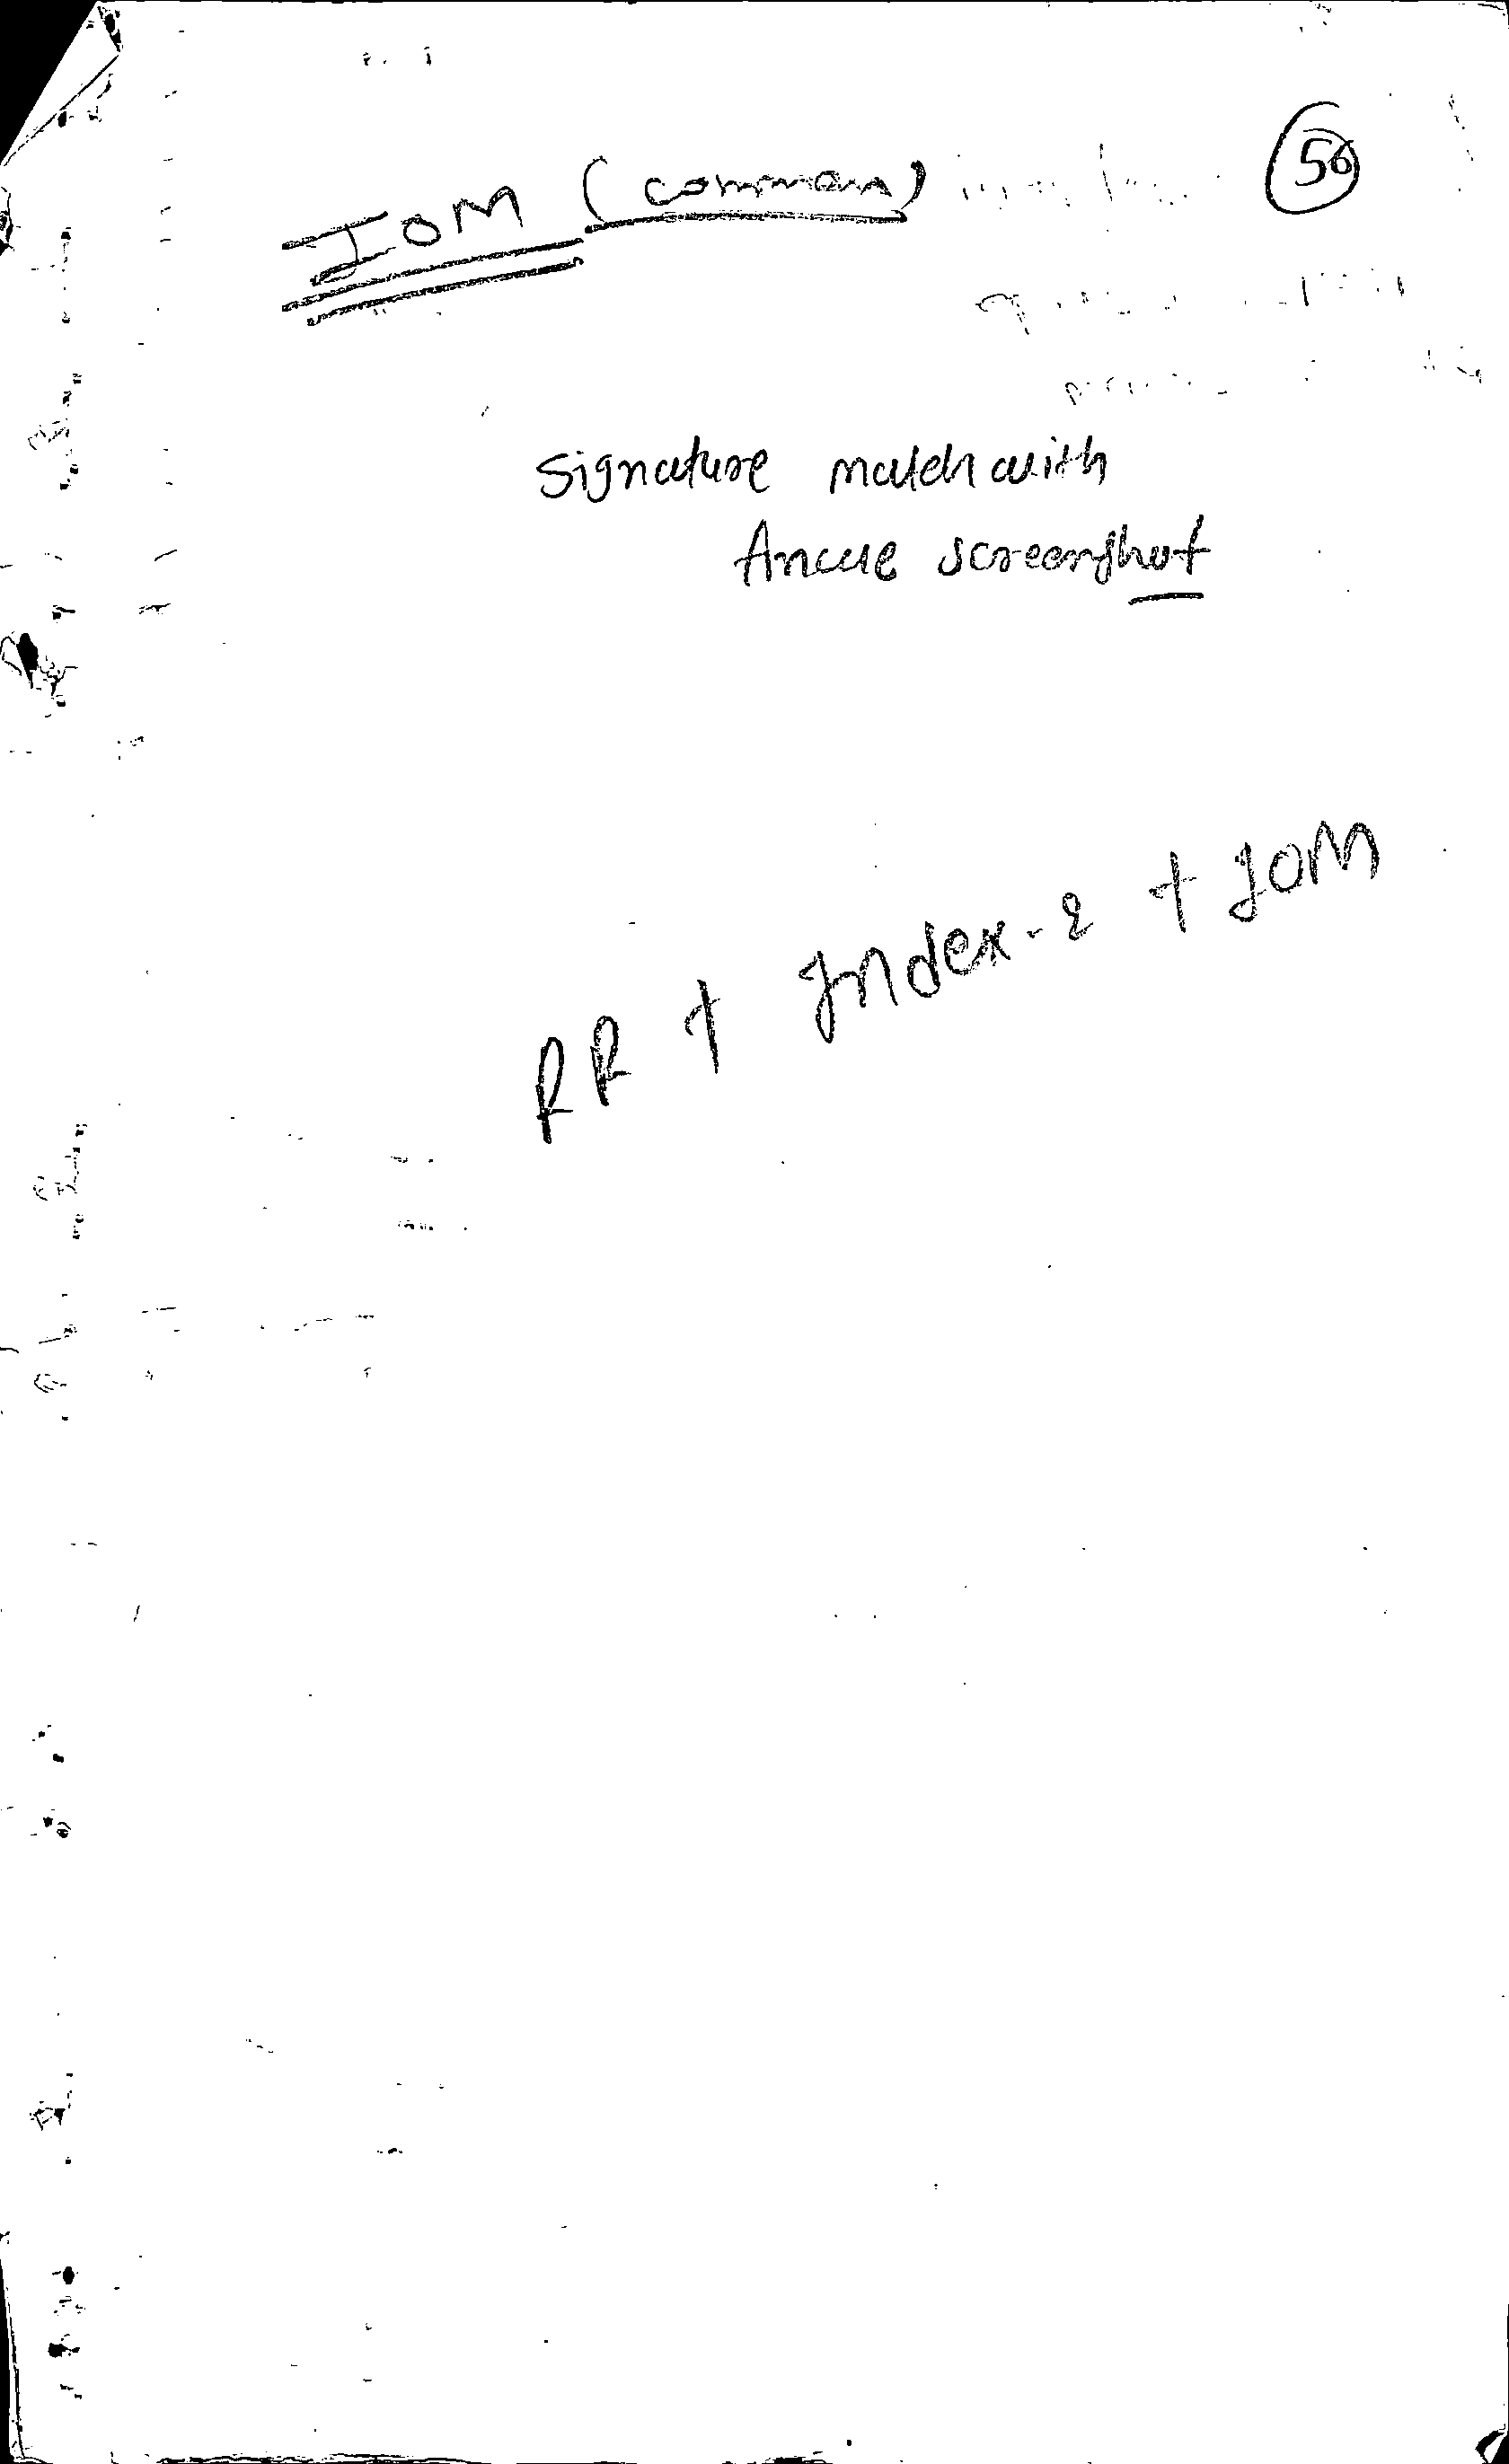 56
IOM (common)
Signature match with
screenshot
RR + Index-2 + IOM